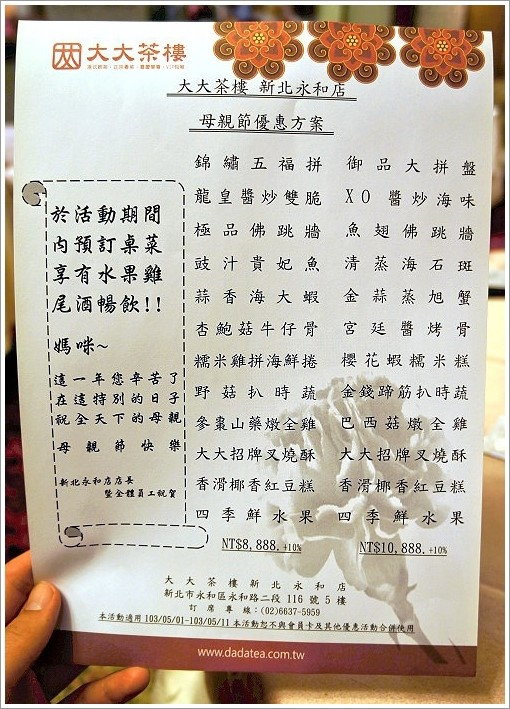 大大茶樓
港式飲茶．立宗粵菜．喜慶宴席．VIP包廂
大大茶樓 新北永和店
母親節優惠方案
於活動期間
內預訂桌菜
享有水果雞
尾酒暢飲!!
媽咪~
這一年您辛苦了
在這特別的日子
祝全天下的母親
母親節快樂
新北永和店店長
暨全體員工祝賀
錦繡五福拼
龍皇醬炒雙脆
極品佛跳牆
豉汁貴妃魚
蒜香海大蝦
杏鮑菇牛仔骨
糯米雞拼海鮮捲
野菇扒時蔬
參棗山藥燉全雞
大大招牌叉燒酥
香滑椰香紅豆糕
四季鮮水果
NT$8,888.+10%
御品大拼盤
XO醬炒海味
魚翅佛跳牆
清蒸海石斑
金蒜蒸旭蟹
宮廷醬烤骨
櫻花蝦糯米糕
金錢蹄筋扒時蔬
巴西菇燉全雞
大大招牌叉燒酥
香滑椰香紅豆糕
四季鮮水果
NT$10,888.+10%
大大茶樓新北永和店
新北市永和區永和路二段 116 號 5 樓
訂席專線：(02)6637-5959
本活動適用 103/05/01-103/05/11 本活動恕不與會員卡及其他優惠活動合併使用
www.dadatea.com.tw